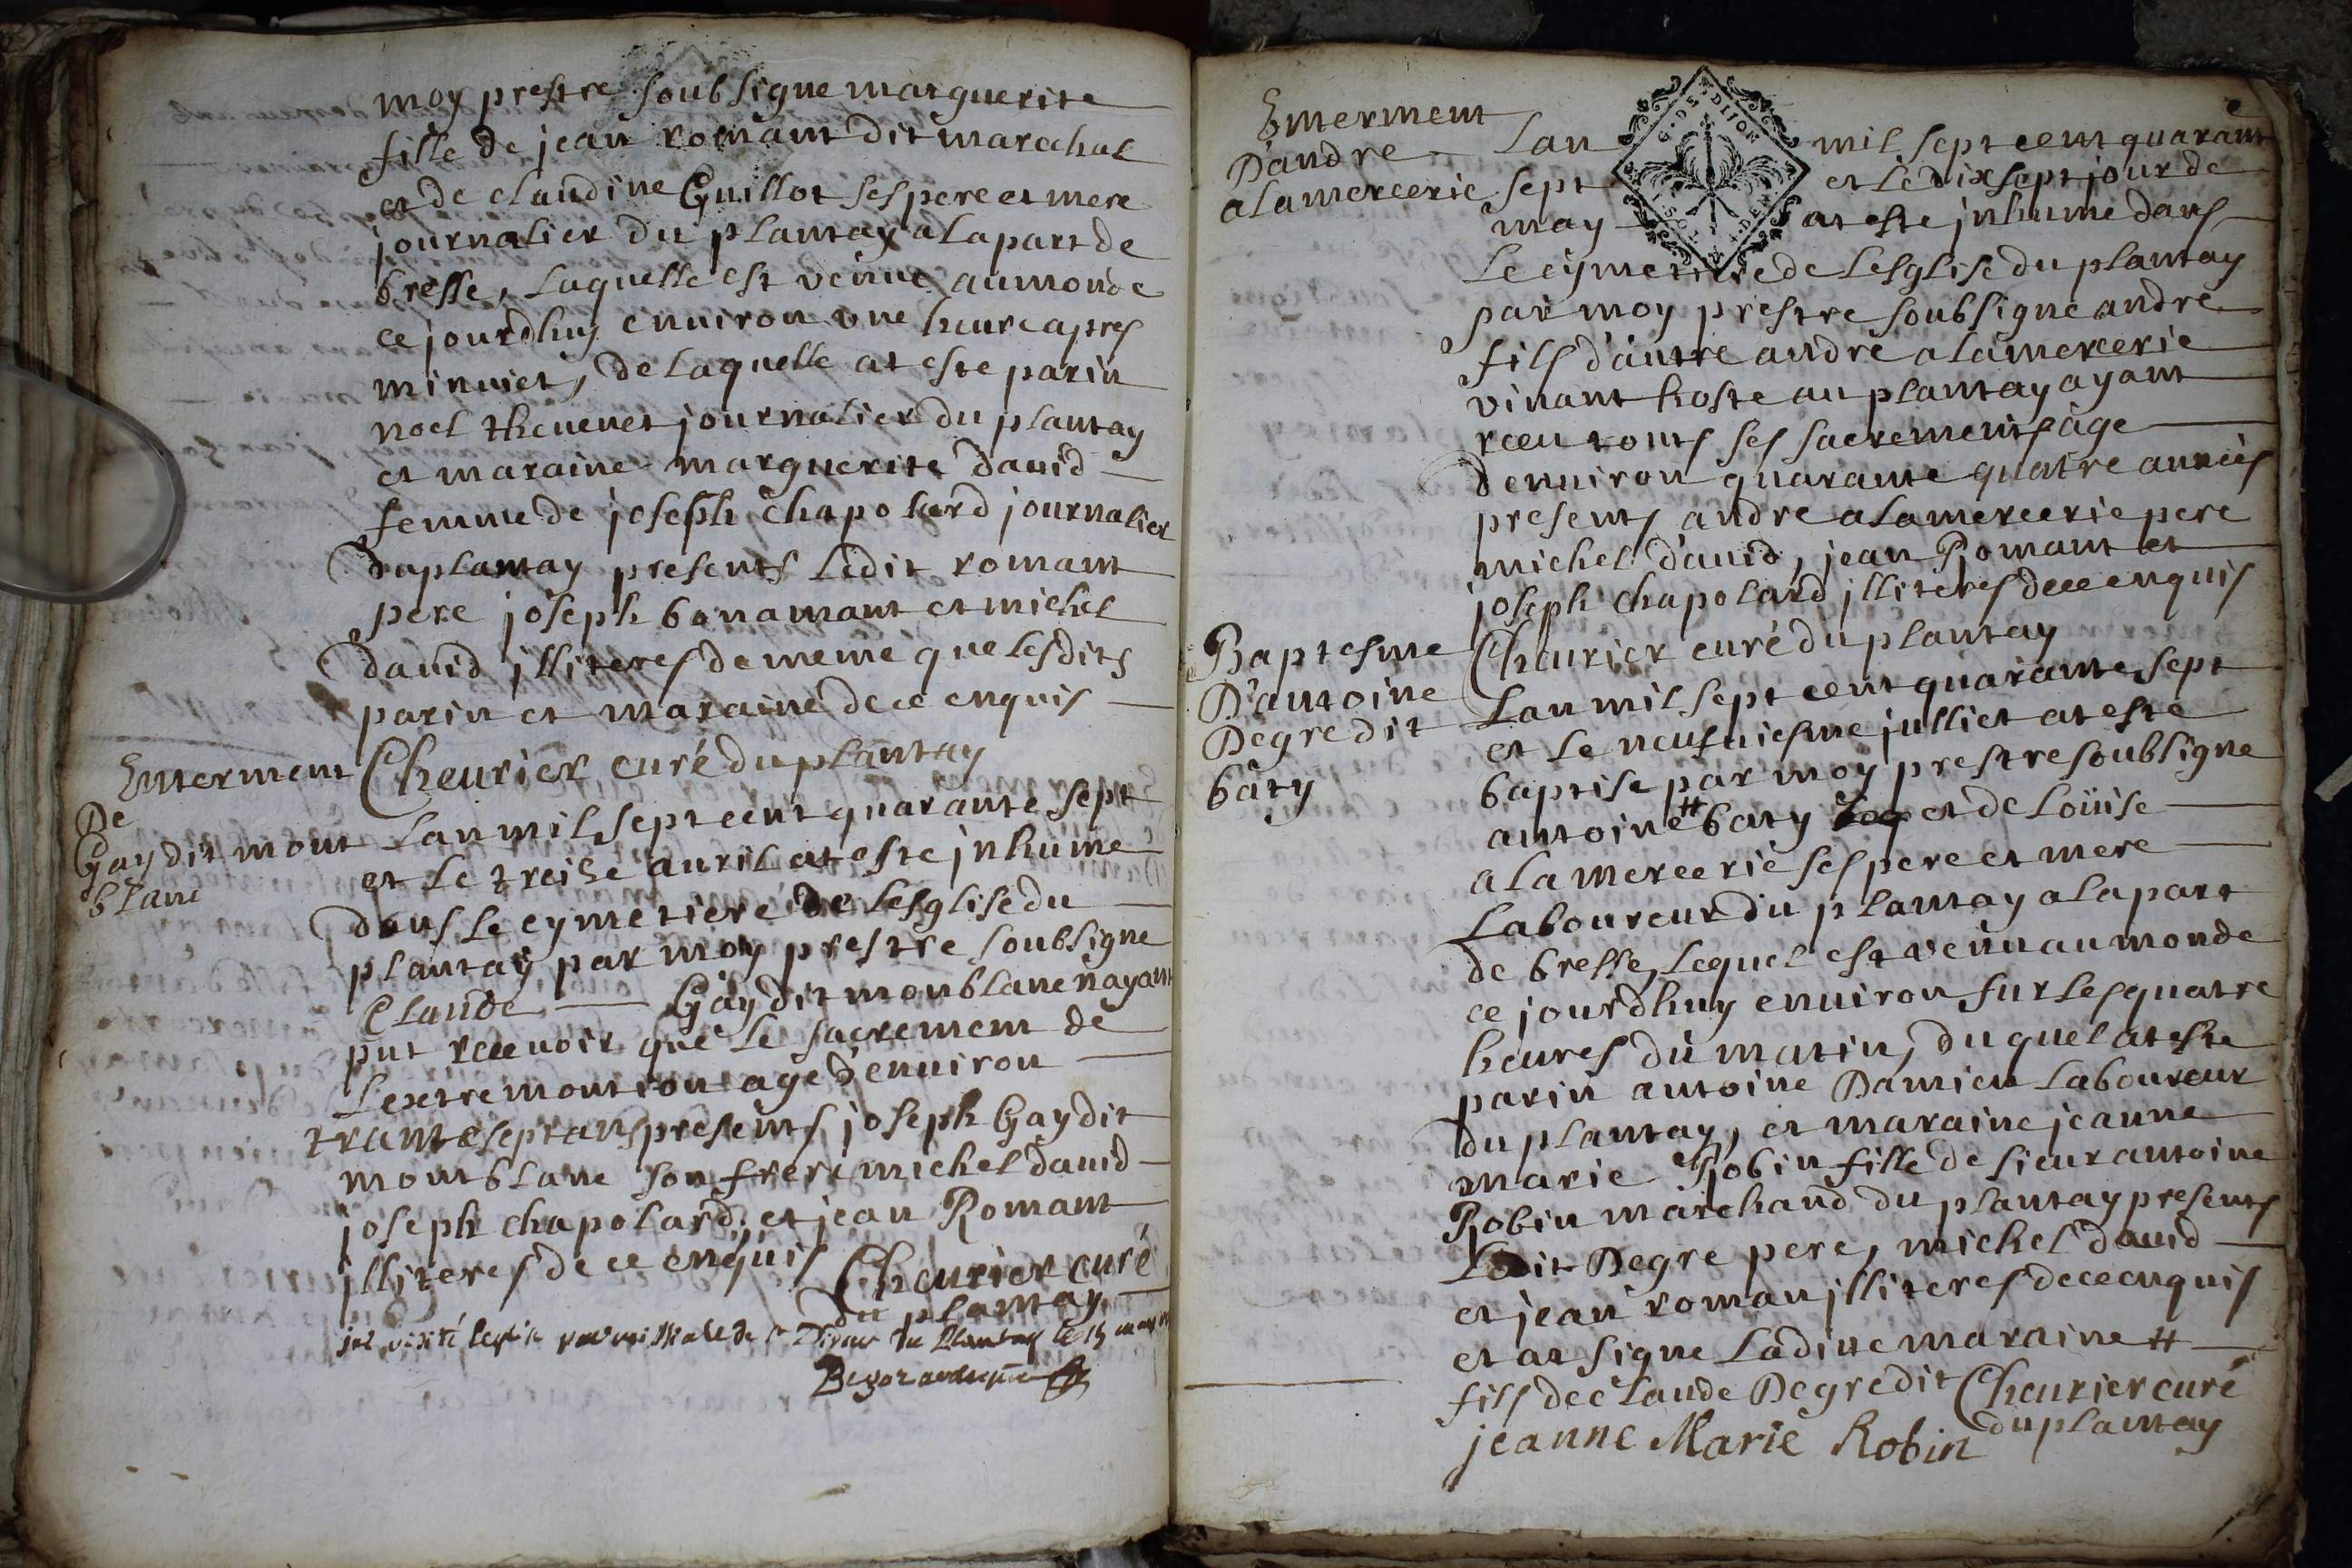 moy prestre soubsigne marguerite
fille de jean romant dit marechal
et de claudine Guillot ses pere et mere
journalier du plantay a la part de
bresse, laquelle est venue au monde
ce jourdhuy enuiron vne heure apres
minuict, de laquelle at este parin
noel theuenet journalier du plantay
et maraine marguerite dauid
femme de joseph chapolard journalier
du plantay presents ledit romant
pere joseph bonamant et michel
dauid illiteres de meme que lesdits
parin et maraine de ce enquis
Cheurier curé du plantay
Enterment
De
Gay dit mont
blanc
Lan mil sept cent quarante sept
et le treize auril at este jnhume
dans le cymetiere de lesglise du
plantay par moy prestre soubsigne
Claude Gay dit monblanc nayant
put receuoir que le sacrement de
lextremontion age denuiron
trante sept ans presents joseph Gay dit
montblanc son frere michel dauid
joseph chapolard, et jean Romant
illiteres de ce enquis Cheurier curé
du plantay
jai visité leglise du Plantay le 15 may
Enterment
D'andre
alamercerie
G·D·S· DIJON
Lan mil sept cent quarante
sept et le dix sept jour de
may at este jnhume dans
le cymetiere de lesglise du plantay
par moy prestre soubsigne andre
fils d'autre andre alamercerie
viuant hoste au plantay ayant
receu touts ses sacrements age
denuiron quarante quatre années
presents andre alamercerie pere
michel dauid, jean Romant et
joseph chapolard jlliteres de ce enquis
Cheurier curé du plantay
Baptesme
D'antoine
Degre dit
baty
Lan mil sept cent quarante sept
et le neufuiesme julliet at este
baptise par moy prestre soubsigne
antoine # baty et de Loüise
alamercerie ses pere et mere
Laboureur du plantay a la part
de bresse, lequel est venu au monde
ce jourdhuy enuiron sur les quatre
heures du matin, du quel at este
parin antoine Damien Laboureur
du plantay, et maraine jeanne
marie Robin fille de sieur antoine
Robin marchand du plantay presents
Ledit Degre pere, michel dauid
et jean roman jlliteres de ce enquis
et at signe Laditte maraine #
fils de claude Degre dit Cheurier curé
du plantay
jeanne Marie Robin